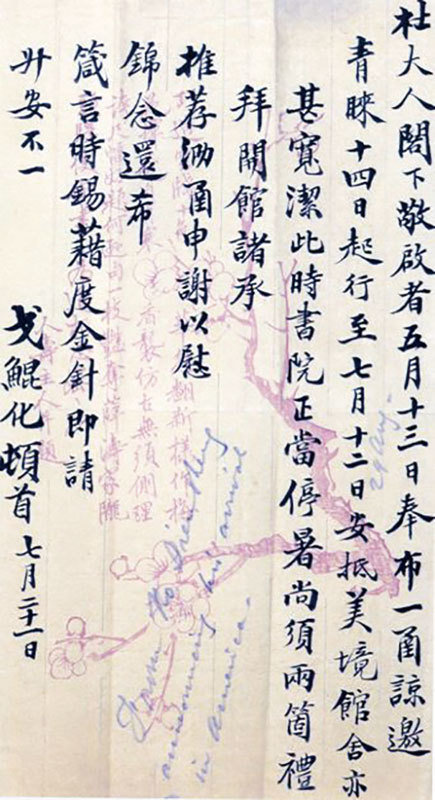 杜大人閣下敬啟者五月十三日奉布一函諒邀
青睞十四日起行至七月十二日安抵美境館舍亦
甚寬潔此時書院正當停暑尚須兩箇禮
拜開館諸承
推荐泐函申謝以慰
錦念還希
箴言時錫藉度金針即請
升安不一
戈鯤化頓首 七月二十一日
29 Aug.
From Ko
announcing his arrival
in America